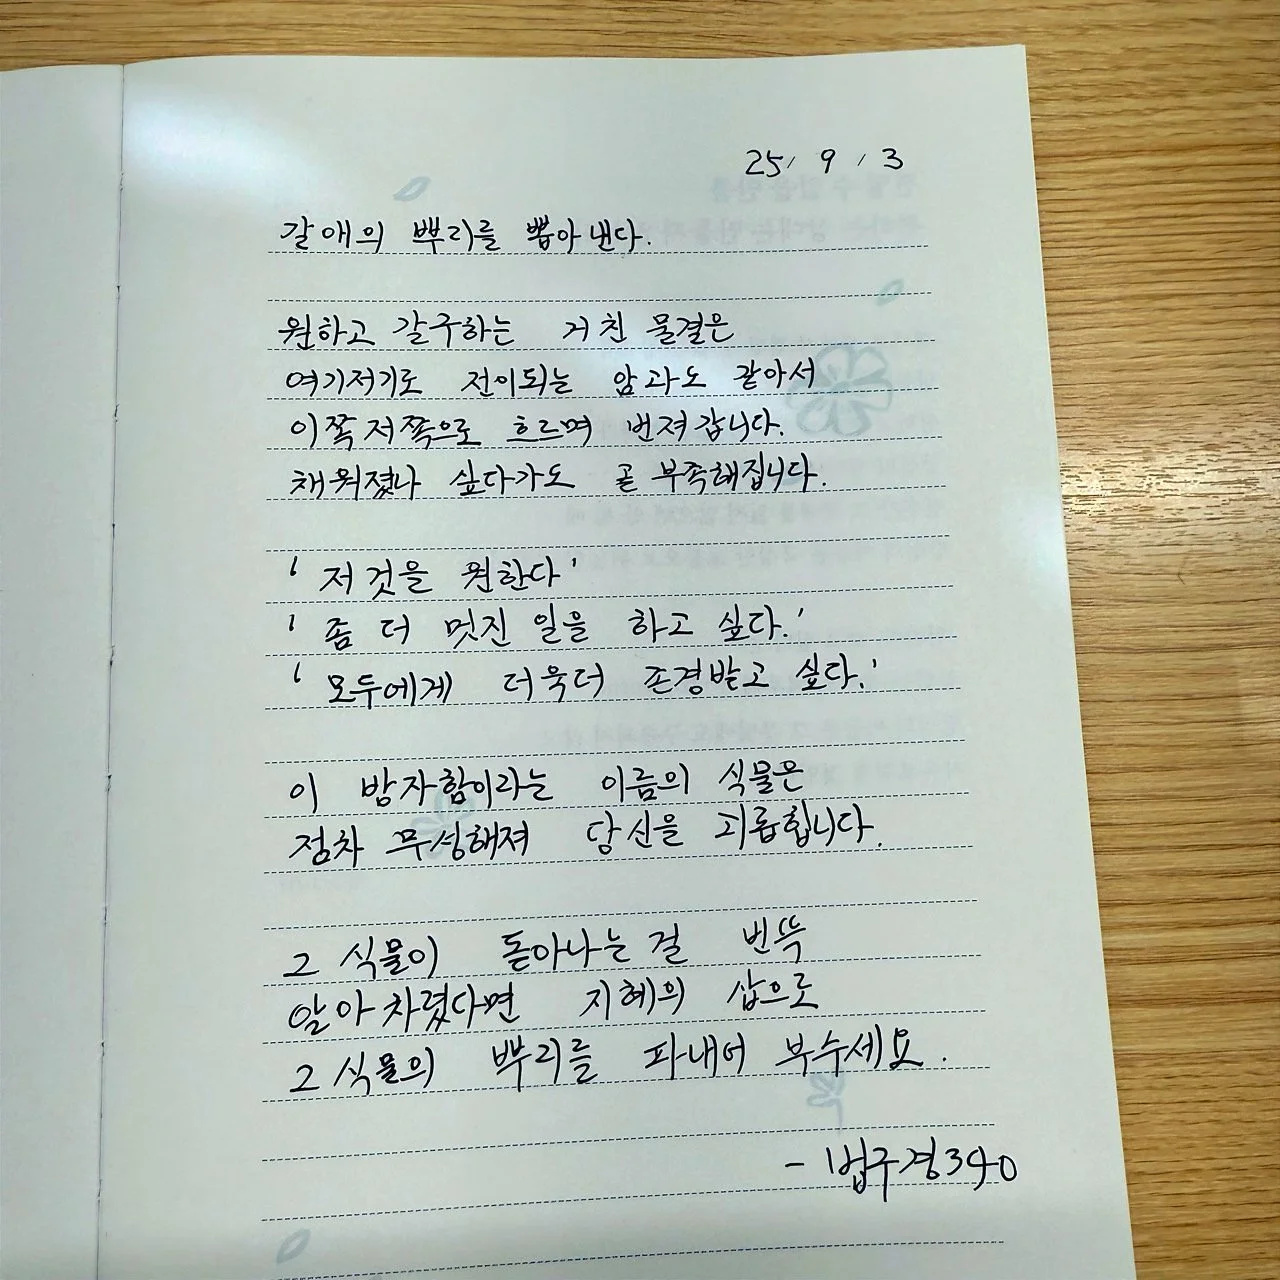 25, 9, 3
갈애의 뿌리를 뽑아낸다.
원하고 갈구하는 거친 물결은
여기저기로 전이되는 암과도 같아서
이쪽저쪽으로 흐르며 번져갑니다.
채워졌나 싶다가도 곧 부족해집니다.
'저것을 원한다'
'좀 더 멋진 일을 하고 싶다.'
'모두에게 더욱더 존경받고 싶다.'
이 방자함이라는 이름의 식물은
점차 무성해져 당신을 괴롭힙니다.
그 식물이 돋아나는 걸 번뜩
알아차렸다면 지혜의 삽으로
그 식물의 뿌리를 파내어 부수세요.
- 법구경340